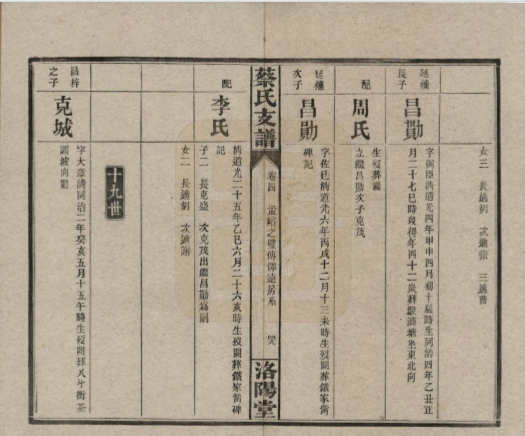 女三 長適胡 次適張 三適曹
廷
長子
昌勷
字弼臣清道光四年甲申四月初十辰時生同治四年乙丑正
月二十七巳時歿得年四十二歲葬 塘坐東北向
配
周氏
生歿葬闕
立繼昌勛次子克茂
廷
次子
昌勛
字佐 清道光六年丙戌十二月十三未時生歿闕葬鐵家
碑記
配
李氏
清道光二十五年乙巳六月二十六亥時生歿闕葬鐵家 碑
記
子二 長克盛 次克茂出繼昌勷為嗣
女二 長適胡 次適謝
蔡氏支譜
卷四 孟 之 傳 遠房系
洛陽堂
十九世
昌梓
之子
克城
字大章清同治二年癸亥五月十五午時生歿闕葬八斗衝茶
園坡向闕